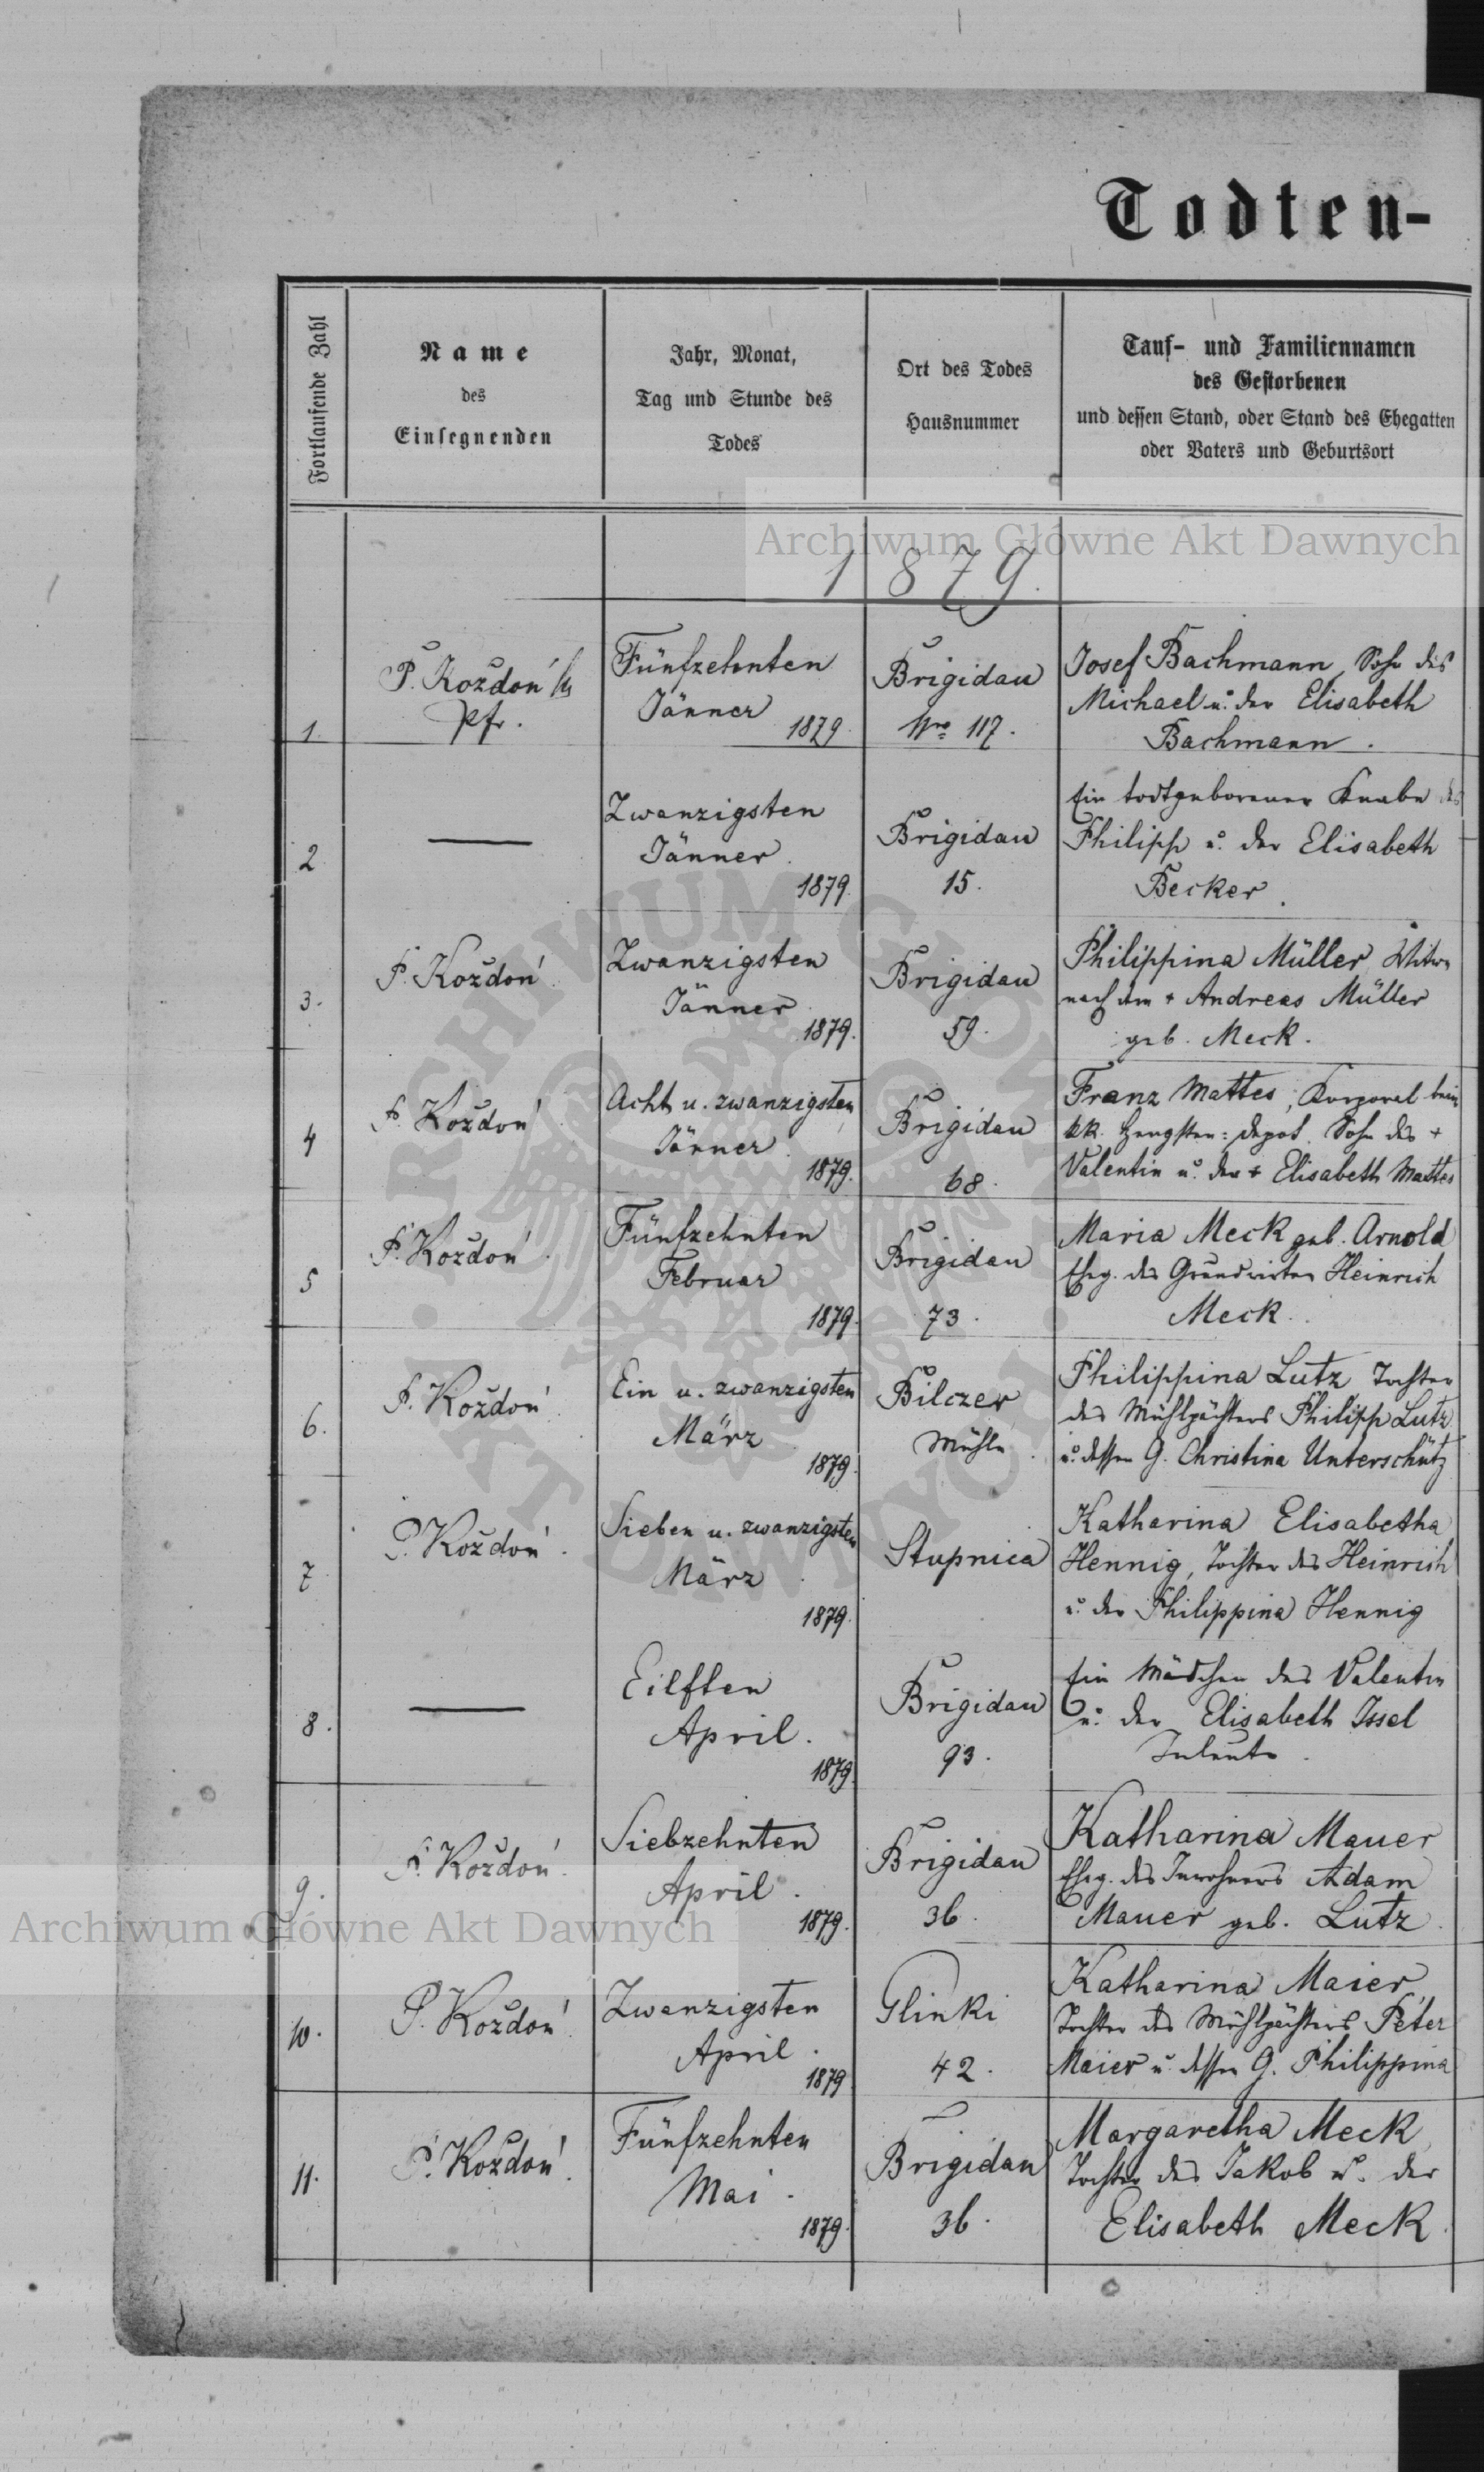 Todten-
Fortlaufende Zahl
Name
des
Einsegnenden
Jahr, Monat,
Tag und Stunde des
Todes
Ort des Todes
Hausnummer
Tauf- und Familiennamen
des Gestorbenen
und dessen Stand, oder Stand des Ehegatten
oder Vaters und Geburtsort
Archiwum Główne Akt Dawnych
1879.
1
P. Koždoń
Pfr.
Fünfzehnten
Jänner
1879.
Brigidau
Nro 117.
Josef Bachmann, Sohn des
Michael u. der Elisabeth
Bachmann.
2
Zwanzigsten
Jänner.
1879.
Brigidau
15.
Ein todtgeborener Knabe des
Philipp u. der Elisabeth
Becker.
3.
P. Koždoń
Zwanzigsten
Jänner
1879.
Brigidau
59.
Philippina Müller, Witwe
nach dem + Andreas Müller
geb. Meck.
4
P. Koždoń
Acht u. zwanzigsten
Jänner.
1879.
Brigidau
68.
Franz Mattes, Korporal beim
kk. Hengsten=Depot. Sohn des +
Valentin u. der + Elisabeth Mattes
5
P. Koždoń.
Fünfzehnten
Februar
1879.
Brigidau
73.
Maria Meck geb. Arnold
Eheg. des Grundwirten Heinrich
Meck.
6.
P. Koždoń
Ein u. zwanzigsten
März
1879.
Bilczer
Mühle.
Philippina Lutz Tochter
des Mühlpächters Philipp Lutz
u. dessen G. Christina Unterschütz
7
P. Koždoń.
Sieben u. zwanzigsten
März.
1879.
Stupnica
Katharina Elisabetha
Hennig, Tochter des Heinrich
u. der Philippina Hennig
8.
Eilften
April.
1879.
Brigidau
93.
Ein Mädchen des Valentin
u. der Elisabeth Issel
Inleute.
9.
P. Koždoń.
Siebzehnten
April.
1879.
Brigidau
36.
Katharina Mauer
Eheg. des Inwohners Adam
Mauer geb. Lutz.
Archiwum Główne Akt Dawnych
10.
P. Koždoń
Zwanzigsten
April.
1879
Glinki
42.
Katharina Maier,
Tochter des Mühlpächters Peter
Maier u. dessen G. Philippina
11.
P. Koždoń.
Fünfzehnten
Mai.
1879.
Brigidau
36.
Margaretha Meck,
Tochter des Jakob u. der
Elisabeth Meck.